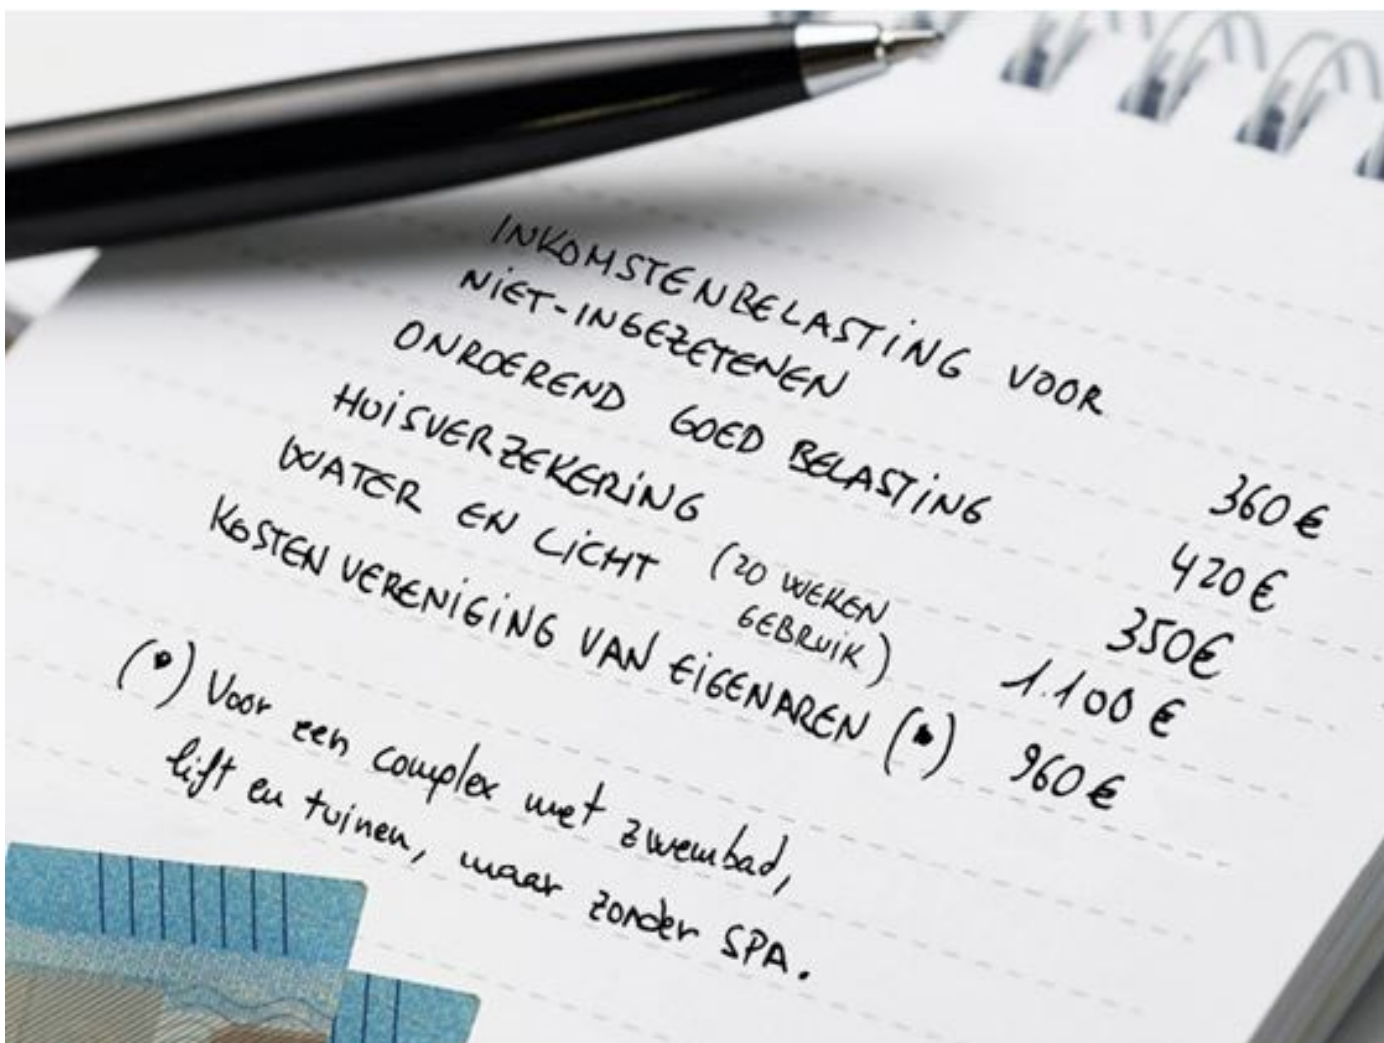 INKOMSTENBELASTING VOOR
NIET-INGEZETENEN 360 €
ONROEREND GOED BELASTING 420 €
HUISVERZEKERING 350 €
WATER EN LICHT (20 WEKEN GEBRUIK) 1.100 €
KOSTEN VERENIGING VAN EIGENAREN (•) 960 €
(•) Voor een complex met zwembad,
lift en tuinen, maar zonder SPA.